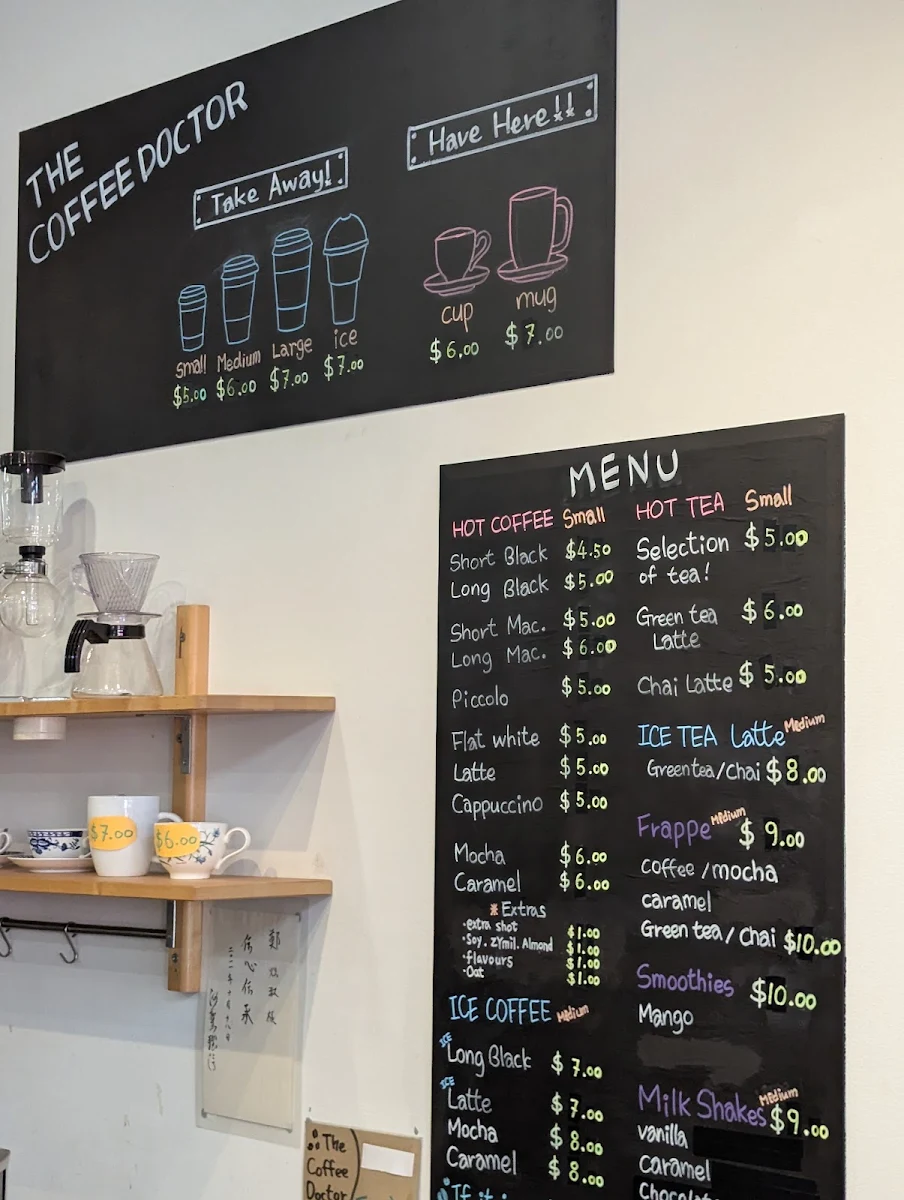 THE
COFFEE DOCTOR
Take Away!
small Medium Large ice
$5.00 $6.00 $7.00 $7.00
Have Here!!
cup mug
$6.00 $7.00
MENU
HOT COFFEE Small
Short Black $4.50
Long Black $5.00
Short Mac. $5.00
Long Mac. $6.00
Piccolo $5.00
Flat white $5.00
Latte $5.00
Cappuccino $5.00
Mocha $6.00
Caramel $6.00
* Extras
·extra shot $1.00
·Soy. ZYmil. Almond $1.00
·flavours $1.00
·Oat $1.00
ICE COFFEE Medium
ICE
Long Black $7.00
ICE
Latte $7.00
Mocha $8.00
Caramel $8.00
HOT TEA Small
Selection $5.00
of tea!
Green tea $6.00
Latte
Chai Latte $5.00
ICE TEA Latte Medium
Greentea/chai $8.00
Frappe Medium $9.00
coffee/mocha
caramel
Green tea/chai $10.00
Smoothies $10.00
Mango
Milk Shakes Medium $9.00
vanilla
Caramel
Chocolate
$7.00
$6.00
伝心伝承
The
Coffee
Doctor